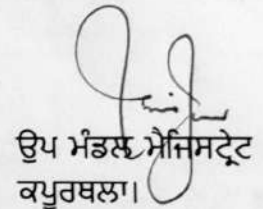 ਉਪ ਮੰਡਲ ਮੈਜਿਸਟ੍ਰੇਟ
ਕਪੂਰਥਲਾ।